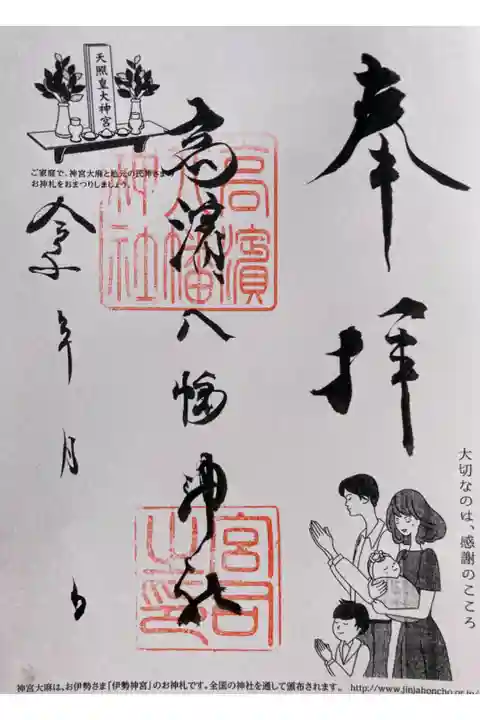 奉拝
高濱八幡神社
高濱八幡神社
宮司之印
令和年月日
天照皇大神宮
ご家庭で、神宮大麻と地元の氏神さまの
お神札をおまつりしましょう。
大切なのは、感謝のこころ
神宮大麻は、お伊勢さま「伊勢神宮」のお神札です。全国の神社を通して頒布されます。 http://www.jinjahoncho.or.jp/